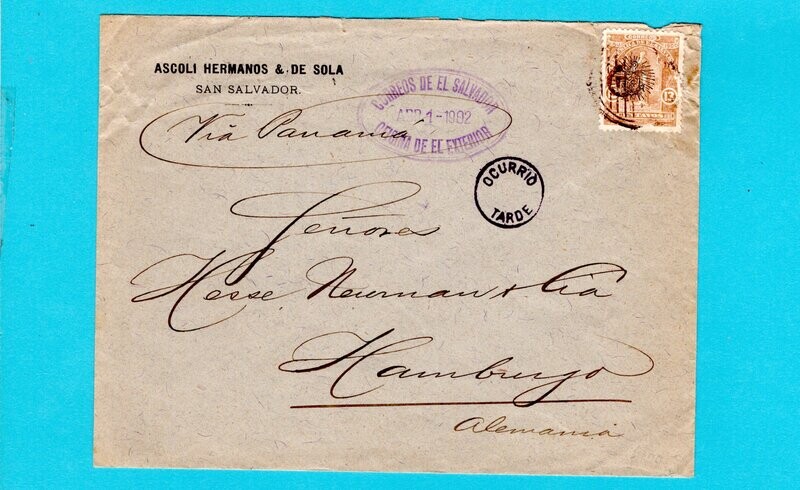 ASCOLI HERMANOS & DE SOLA
SAN SALVADOR.
CORREOS DE EL SALVADOR
APR 1-1902
OFICINA DE EL EXTERIOR
Via Panama
OCURRIÓ
TARDE
12
Señores
Hesse Newman & Cia
Hamburgo
Alemania